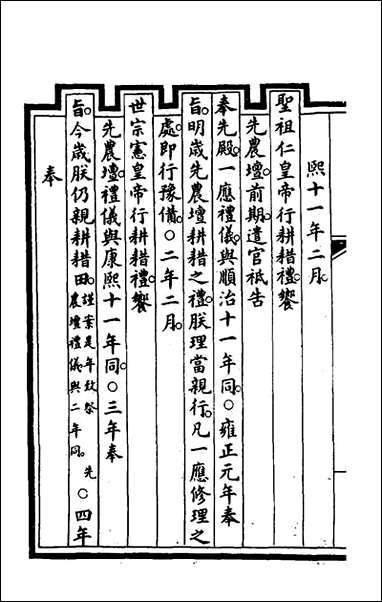 熙十一年二月。
聖祖仁皇帝行耕耤禮。饗
先農壇。前期。遣官祗告
奉先殿。一應禮儀。與順治十一年同。○雍正元年奉
旨。明歲先農壇耕耤之禮。朕理當親行。凡一應修理之
處。即行豫備。○二年二月。
世宗憲皇帝行耕耤禮。饗
先農壇。禮儀與康熙十一年同。○三年奉
旨。今歲朕仍親耕耤田。謹案是年致祭先農壇禮儀與二年同。○四年
奉